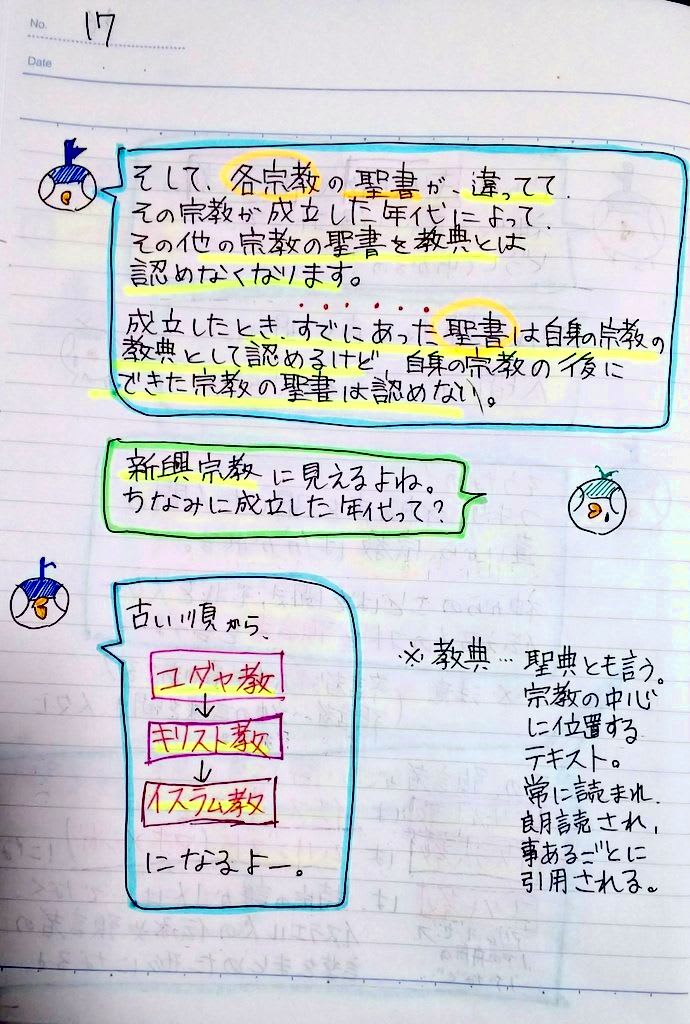 No. 17
Date
そして、各宗教の聖書が、違ってて
その宗教が成立した年代によって、
その他の宗教の聖書を教典とは
認めなくなります。
成立したとき、すでにあった聖書は自身の宗教の
教典として認めるけど、自身の宗教の後に
できた宗教の聖書は認めない。
新興宗教に見えるよね。
ちなみに成立した年代って?
古い順から、
ユダヤ教
↓
キリスト教
↓
イスラム教
になるよー。
※教典…聖典とも言う。
宗教の中心
に位置する
テキスト。
常に読まれ、
朗読され、
事あるごとに
引用される。